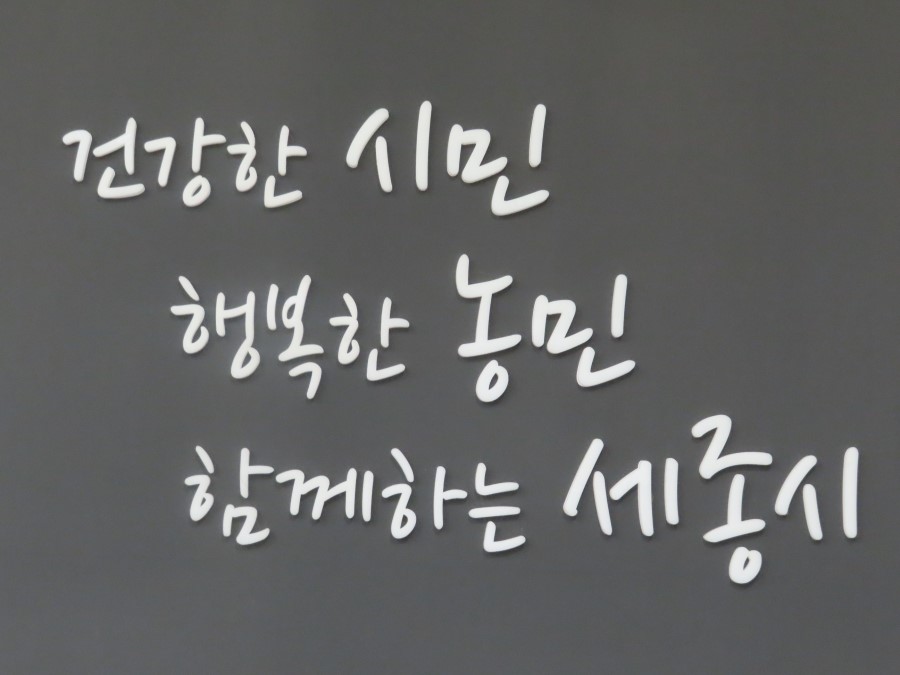 건강한 시민
행복한 농민
함께하는 세종시